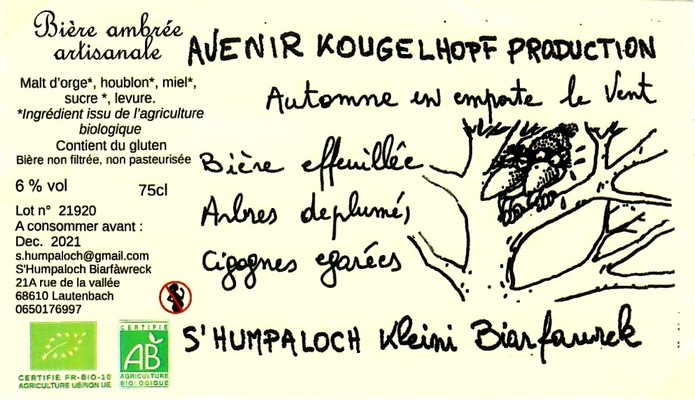 Bière ambrée
artisanale
Malt d'orge*, houblon*, miel*,
sucre *, levure.
*Ingrédient issu de l'agriculture
biologique
Contient du gluten
Bière non filtrée, non pasteurisée
6 % vol 75cl
Lot n° 21920
A consommer avant :
Dec. 2021
s.humpaloch@gmail.com
S'Humpaloch Biarfàwreck
21A rue de la vallée
68610 Lautenbach
0650176997
CERTIFIÉ FR-BIO-10
AGRICULTURE UE/NON UE
CERTIFIÉ
AB
AGRICULTURE
BIOLOGIQUE
AVENIR KOUGELHOPF PRODUCTION
Automne en emporte le Vent
Bière effeuillée
Arbres deplumés
Cigognes egarées
S'HUMPALOCH Kleini Biarfawrek